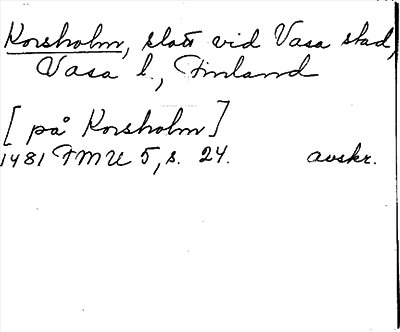 Korsholm, slott vid Vasa stad,
Vasa l., Finland
[på Korsholm]
1481 FMU 5, s. 24. avskr.